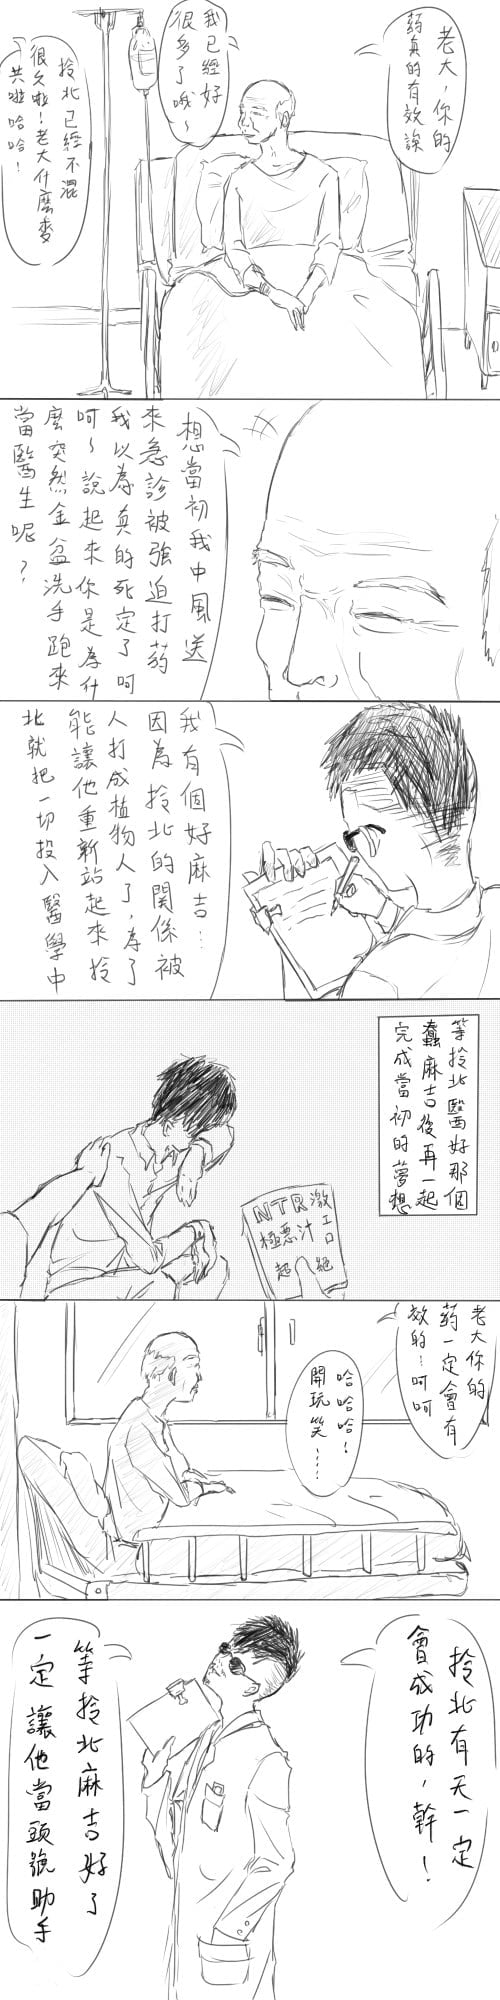 老大,你的
葯真的有效誒
我已經好
很多了哦~
拎北已經不混
很久啦!老大什麼麥
共啦哈哈!
想當初我中風送
來急診被強迫打葯
我以為真的死定了呵
呵~說起來你是為什
麼突然金盆洗手跑來
當醫生呢?
我有個好麻吉…
因為拎北的關係被
人打成植物人了,為了
能讓他重新站起來拎
北就把一切投入醫學中
等拎北醫好那個
蠢麻吉後再一起
完成當初的夢想
NTR激エロ
極悪汁
超絕
老大你的
葯一定會有
效的…呵呵
哈哈哈!
開玩笑……
拎北有天一定
會成功的,幹!
等拎北麻吉好了
一定讓他當頭號助手